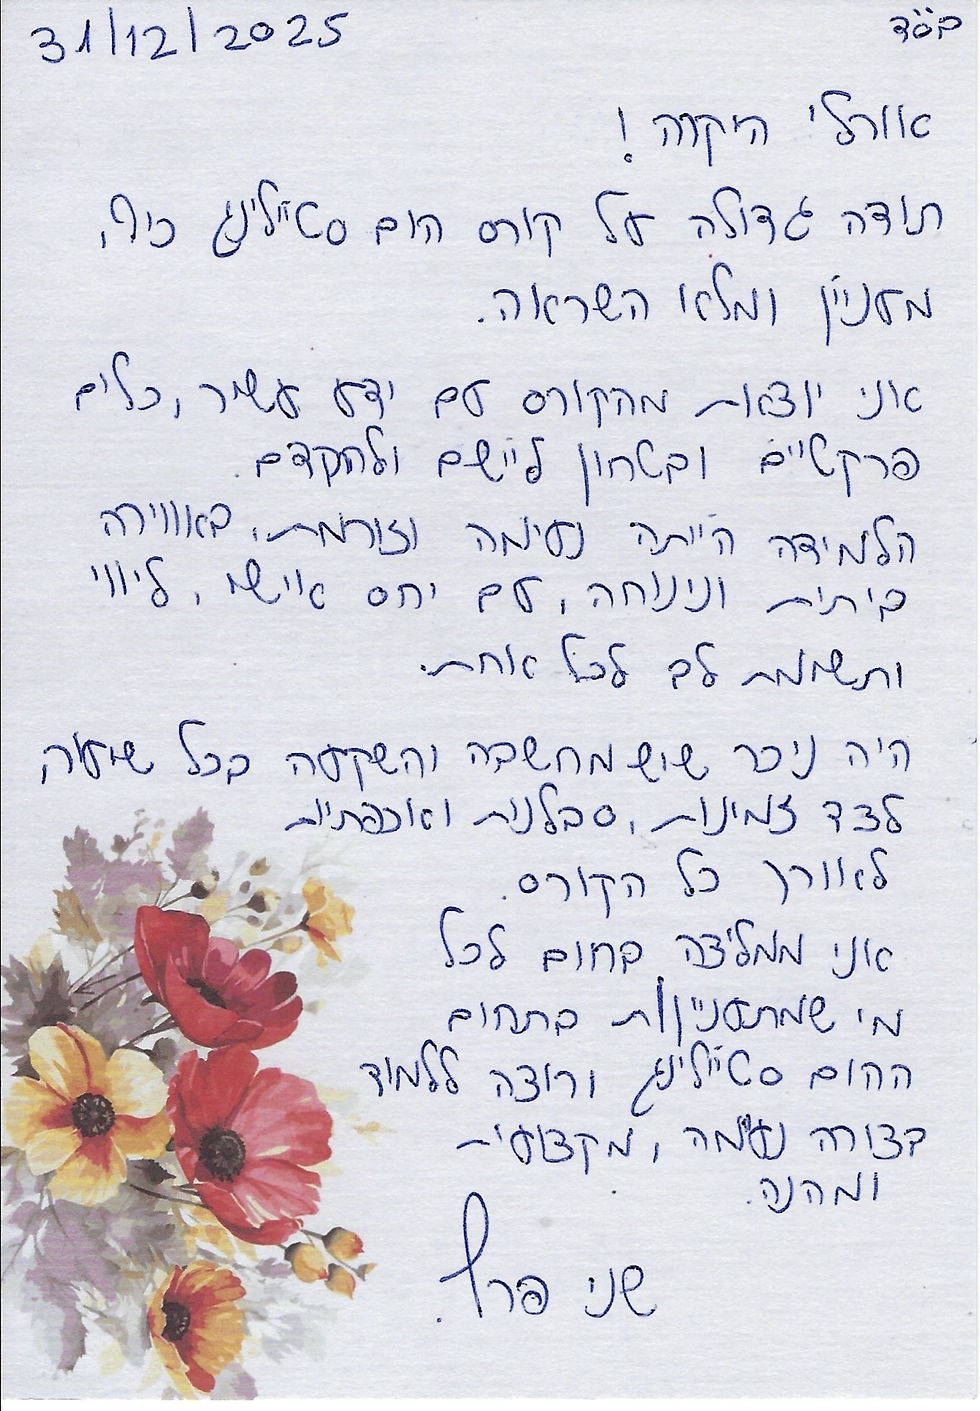 בס"ד
31/12/2025
אורלי היקרה!
תודה גדולה על קורס הום סטיילינג כיפי,
מעניין ומלא השראה.
אני יוצאת מהקורס עם ידע עשיר, כלים
פרקטיים ובטחון ליישם ולהתקדם.
הלמידה הייתה נעימה וזורמת, באווירה
ביתית ונינוחה, עם יחס אישי, ליווי
ותשומת לב לכל אחת.
היה ניכר שיש מחשבה והשקעה בכל שיעור,
לצד זמינות, סבלנות ואכפתיות
לאורך כל הקורס.
אני ממליצה בחום לכל
מי שמתעניין/ת בתחום
ההום סטיילינג ורוצה ללמוד
בצורה נעימה, מקצועית
ומהנה.
שני פרץ.